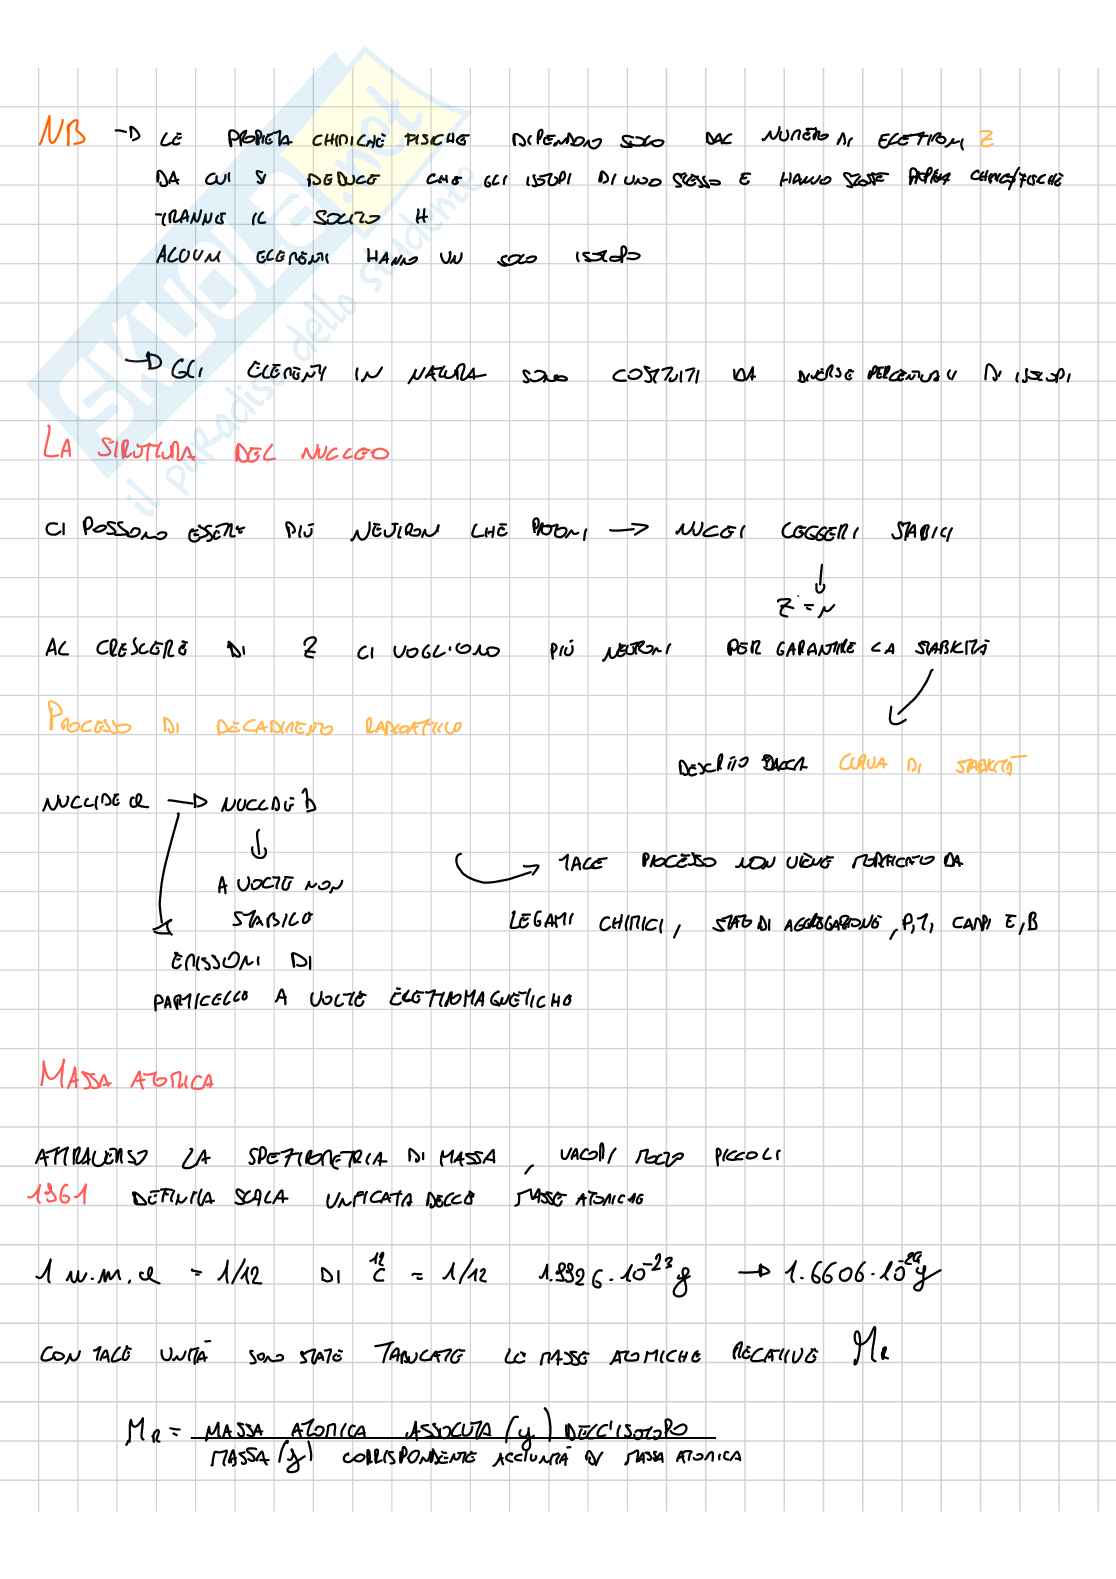 NB → LE PROPIETÀ CHIMICHE FISICHE DIPENDONO SOLO DAL NUMERO DI ELETTRONI Z
DA CUI SI DEDUCE CHE GLI ISOTOPI DI UNO STESSO E HANNO STESSE CHIMICHE/FISICHE
TRANNE IL SOLITO H
ALCUNI ELEMENTI HANNO UN SOLO ISOTOPO
→ GLI ELEMENTI IN NATURA SONO COSTITUITI DA DIVERSE PERCENTUALI DI ISOTOPI
LA STRUTTURA DEL NUCLEO
CI POSSONO ESSERE PIÙ NEUTRONI CHE PROTONI → NUCLEI LEGGERI STABILI
Z = N
AL CRESCERE DI Z CI VOGLIONO PIÙ NEUTRONI PER GARANTIRE LA STABILITÀ
PROCESSO DI DECADIMENTO RADIOATTIVO
DESCRITTO DALLA CURVA DI STABILITÀ
NUCLIDE a → NUCLIDE b
→ TALE PROCESSO NON VIENE MODIFICATO DA
A VOLTE NON
STABILE
LEGAMI CHIMICI, STATO DI AGGREGAZIONE, P, T, CAMPI E, B
EMISSIONI DI
PARTICELLE A VOLTE ELETTROMAGNETICHE
MASSA ATOMICA
ATTRAVERSO LA SPETTROMETRIA DI MASSA, VALORI MOLTO PICCOLI
1961 DEFINITA SCALA UNIFICATA DELLE MASSE ATOMICHE
1 u.m.a = 1/12 DI ¹²C = 1/12 1.9926·10⁻²³ g → 1.6606·10⁻²⁴ g
CON TALE UNITÀ SONO STATE TABULATE LE MASSE ATOMICHE RELATIVE Mr
Mr = MASSA ATOMICA ASSOLUTA (g) DELL'ISOTOPO
MASSA (g) CORRISPONDENTE ALL'UNITÀ DI MASSA ATOMICA
SKUOLA.net
il paradiso dello studente